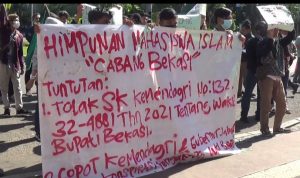 HIMPUNAN MAHASISWA ISLAM
"CABANG BEKASI"
TUNTUTAN:
1. TOLAK SK KEMENDAGRI No: 132.
32-4881 Thn 2021 TENTANG WAKIL
BUPATI BEKASI.
2. COPOT KEMENDAGRI & GUBERNUR